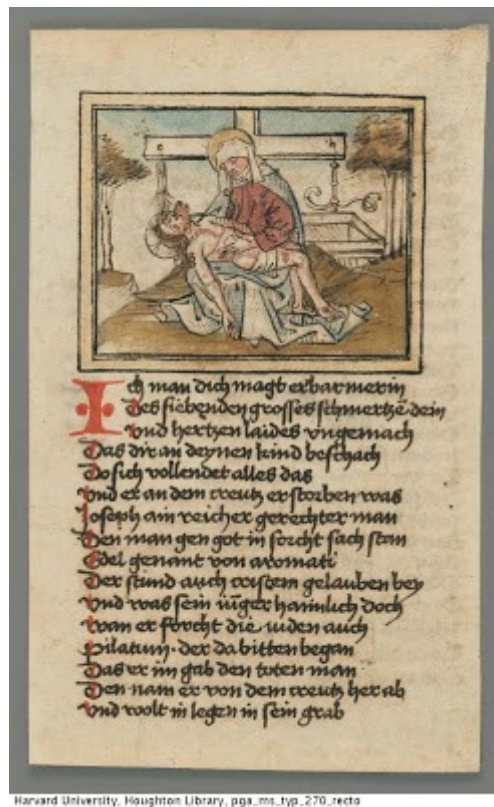 Ich man dich magt erbarmerin
Des sibenden grosses schmertzē dein
Vnd hertzen laides vngemach
Das dir an deynen kind beschach
Do sich vollendet alles das
Vnd er an dem creutz erstorben was
Joseph ain reicher gerechter man
Den man gen got in forcht sach stan
Edel genant von aromati
Der stund auch cristem gelauben bey
Vnd was sein iūger haimlich doch
Wan er forcht die iuden auch
Pilatum · der da bitten began
Das er im gab den toten man
Den nam er von dem creutz her ab
Vnd wolt in legen in sein grab
Harvard University, Houghton Library, pga_ms_typ_270_recto